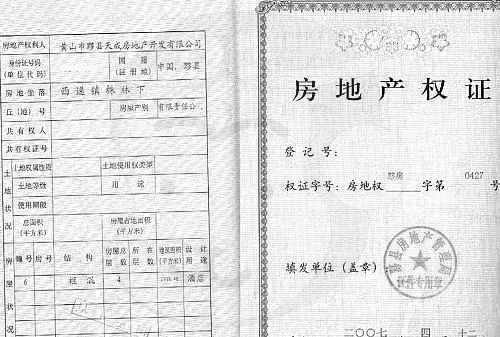 房地产权利人 黄山市黟县天成房地产开发有限公司
身份证号码
(单位代码) 国籍
(注册地) 中国,黟县
房地坐落 西递镇株林下
丘(地)号 房屋产别 有限责任公
共有权人
共有权证号
土地状况 土地权属性质 土地使用权类型
土地等级 用途
使用期限
总面积
(平方米) 房屋占地面积
(平方米)
房屋状况 幢号 房号 结构 房屋总层数 所在层数 建筑面积(平方米) 设计用途
6 框混 4 酒店
房地产权证
登记号:
权证字号:房地权 黟房 字第 0427 号
填发单位(盖章)
黟县房地产管理局
证件专用章
二〇〇七 四 十二